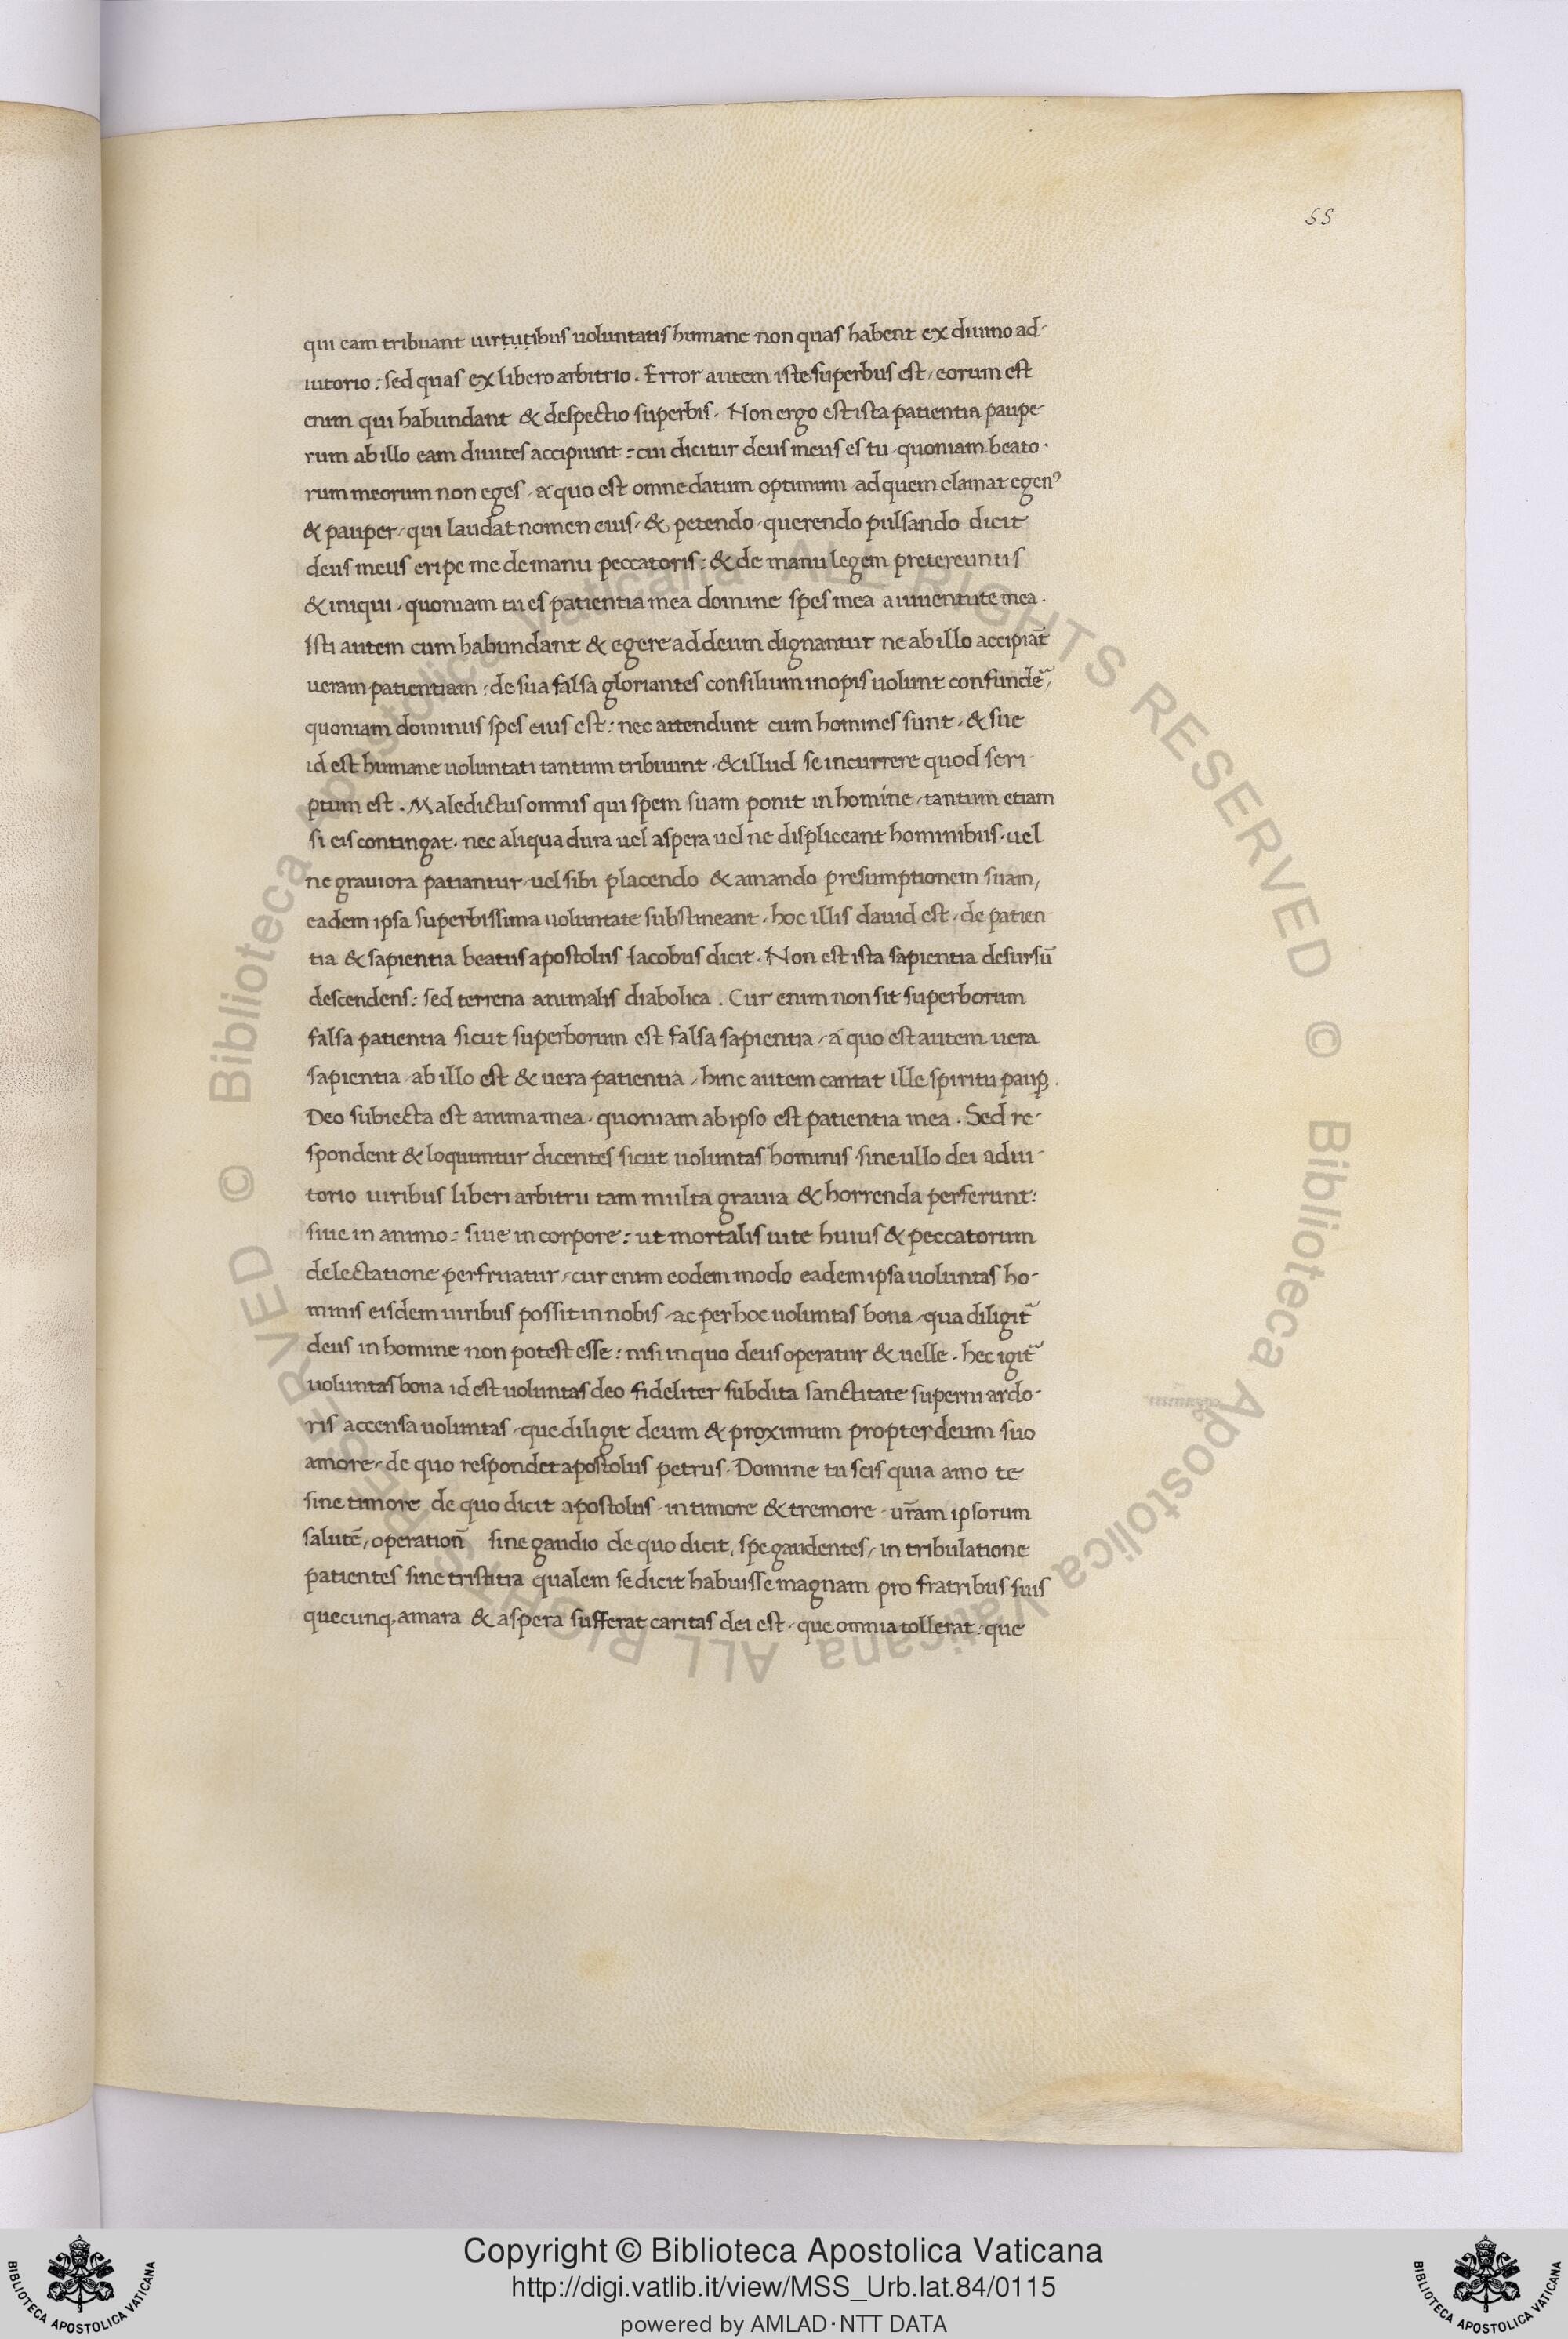 55
qui eam tribuant uirtutibus uoluntatis humane non quas habent ex diuino ad-
iutorio : sed quas ex libero arbitrio . Error autem iste superbus est / eorum est
enim qui habundant & despectio superbis . Non ergo est ista patientia paupe-
rum ab illo eam diuites accipiunt : cui dicitur deus meus es tu quoniam beato .
rum meorum non eges / a quo est omne datum optimum ad quem clamat egenꝰ
& pauper / qui laudat nomen eius / & petendo querendo pulsando dicit
deus meus eripe me de manu peccatoris : & de manu legem pretereuntis
& iniqui . quoniam tu es patientia mea domine spes mea a iuuentute mea .
Isti autem cum habundant & egere ad deum dignantur ne ab illo accipiāt
ueram patientiam : de sua falsa gloriantes consilium inopis uolunt confundē /
quoniam dominus spes eius est : nec attendunt cum homines sunt . & sue
id est humane uoluntati tantum tribuunt . & illud se incurrere quod scri-
ptum est . Maledictus omnis qui spem suam ponit in homine / tantum etiam
si eis contingat . nec aliqua dura uel aspera uel ne displiceant hominibus . uel
ne grauiora patiantur / uel sibi placendo & amando presumptionem suam /
eadem ipsa superbissima uoluntate substineant . hoc illis dauid est / de patien-
tia & sapientia beatus apostolus Iacobus dicit . Non est ista sapientia desursū
descendens : sed terrena animalis diabolica . Cur enim non sit superborum
falsa patientia sicut superborum est falsa sapientia / a quo est autem uera
sapientia / ab illo est & uera patientia / hinc autem cantat ille spiritu paup̱ .
Deo subiecta est anima mea . quoniam ab ipso est patientia mea . Sed re-
spondent & loquuntur dicentes sicut uoluntas hominis sine ullo dei adiu-
torio uiribus liberi arbitrii tam multa grauia & horrenda perferunt :
siue in animo : siue in corpore : ut mortalis uite huius & peccatorum
delectatione perfruatur / cur enim eodem modo eadem ipsa uoluntas ho-
minis eisdem uiribus possit in nobis / ac per hoc uoluntas bona / qua diligit̃
deus in homine non potest esse : nisi in quo deus operatur & uelle . hec igit̃
uoluntas bona id est uoluntas deo fideliter subdita sanctitate superni ardo-
ris accensa uoluntas / que diligit deum & proximum propter deum suo
amore / de quo respondet apostolus petrus . Domine tu scis quia amo te
sine timore de quo dicit apostolus in timore & tremore ur̄am ipsorum
salutē / operation̄ sine gaudio de quo dicit / spe gaudentes / in tribulatione
patientes sine tristitia qualem se dicit habuisse magnam pro fratribus suis
quecunq. amara & aspera sufferat caritas dei est / que omnia tollerat : que
Copyright © Biblioteca Apostolica Vaticana
http://digi.vatlib.it/view/MSS_Urb.lat.84/0115
powered by AMLAD·NTT DATA
BIBLIOTECA APOSTOLICA VATICANA
BIBLIOTECA APOSTOLICA VATICANA
© Biblioteca Apostolica Vaticana ALL RIGHTS RESERVED
© Biblioteca Apostolica Vaticana ALL RIGHTS RESERVED